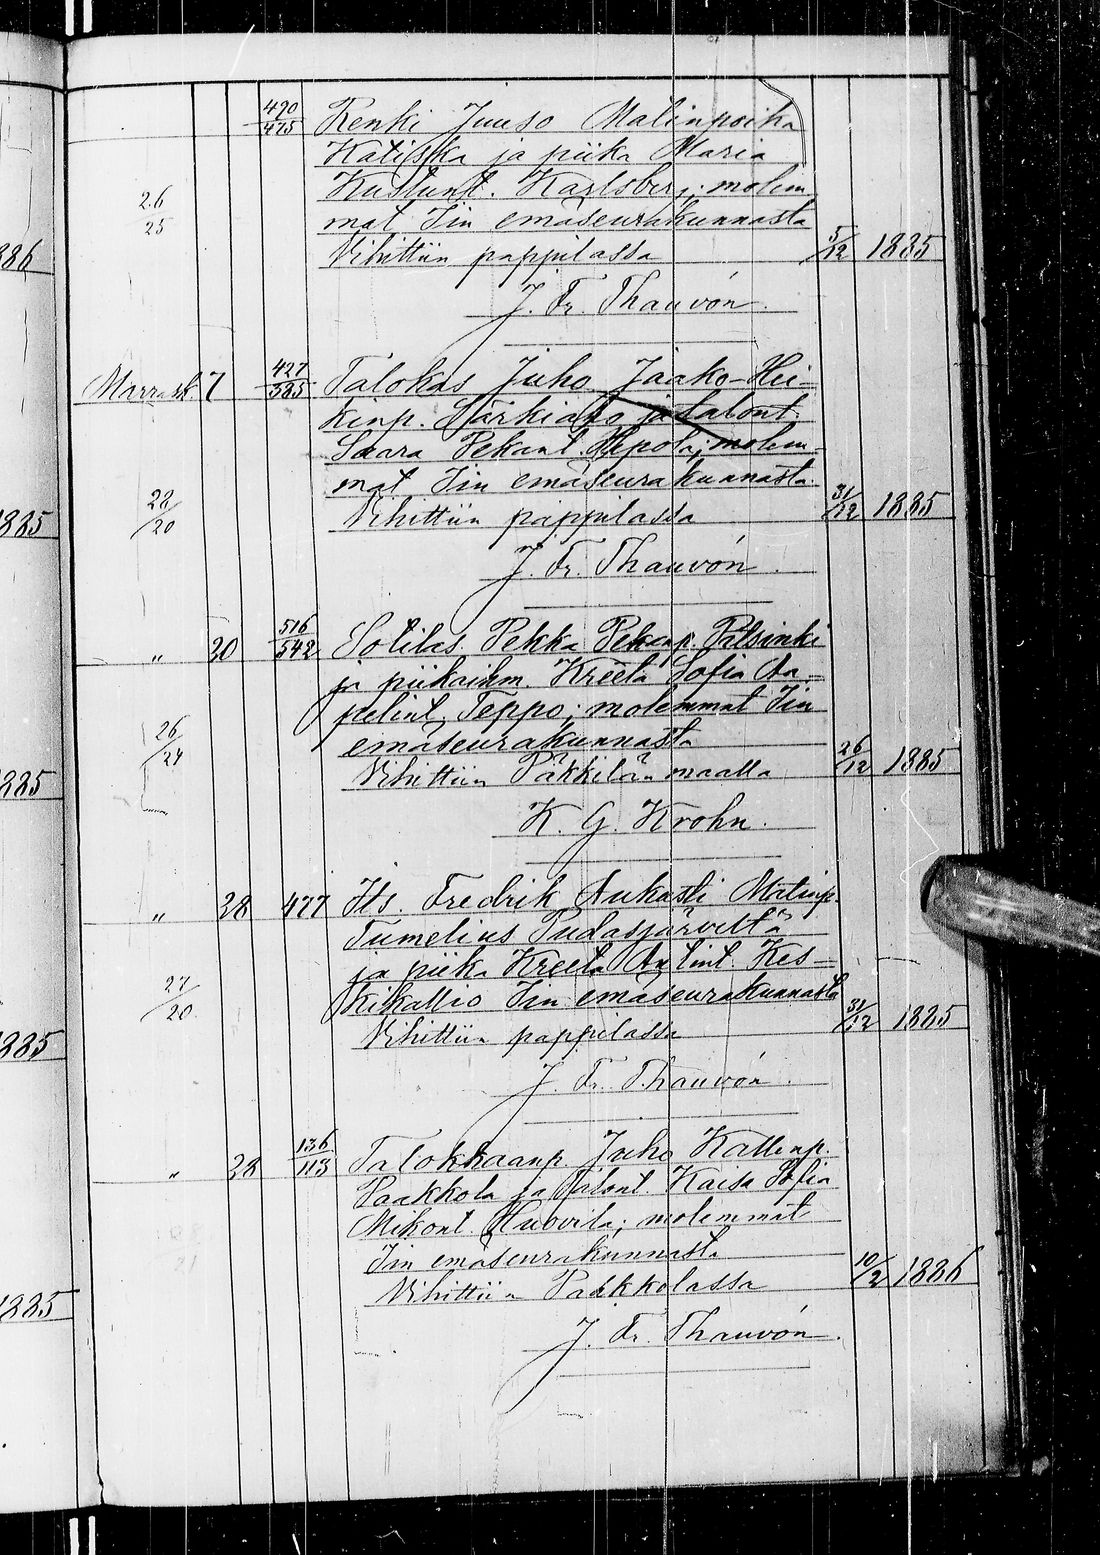 420/475 Renki Juuso Matinpoika
Katiska ja piika Maria
26/25 Kustunt. Karlsberg; molem
mat Iin emäseurakunnasta
Vihittiin pappilassa 5/12 1885
J. Fr. Thauvón.
Marrask. 7 427/585 Talokas Juho Jaako-Hei-
kinp. Särkiaho ja talont.
Saara Pekant. Hepola; molem-
mat Iin emäseurakunnasta.
28/20 Vihittiin pappilassa 31/12 1885
J. Fr. Thauvón.
„ 20 516/542 Sotilas Pekka Pekanp. Patsinki
ja piikaihm. Kreeta Sofia Aa-
pelint. Teppo; molemmat Iin
26/24 emäseurakunnasta
Vihittiin Päkkilän maalla 26/12 1885
K. G. Krohn.
„ 28 477 Its. Fredrik Aukusti Matinp.
Tumelius Pudasjärveltä
ja piika Kreeta Antint. Kes-
27/20 kikallio Iin emäseurakunnasta
Vihittiin pappilassa 31/12 1885
J. Fr. Thauvón.
„ 28 136/113 Talokkaanp. Juho Kallenp.
Paakkola ja talont. Kaisa Sofia
Mikont. Huovila; molemmat
Iin emäseurakunnasta
Vihittiin Paakkolassa 10/2 1886
J. Fr. Thauvón.
886
1885
1885
1885
1885